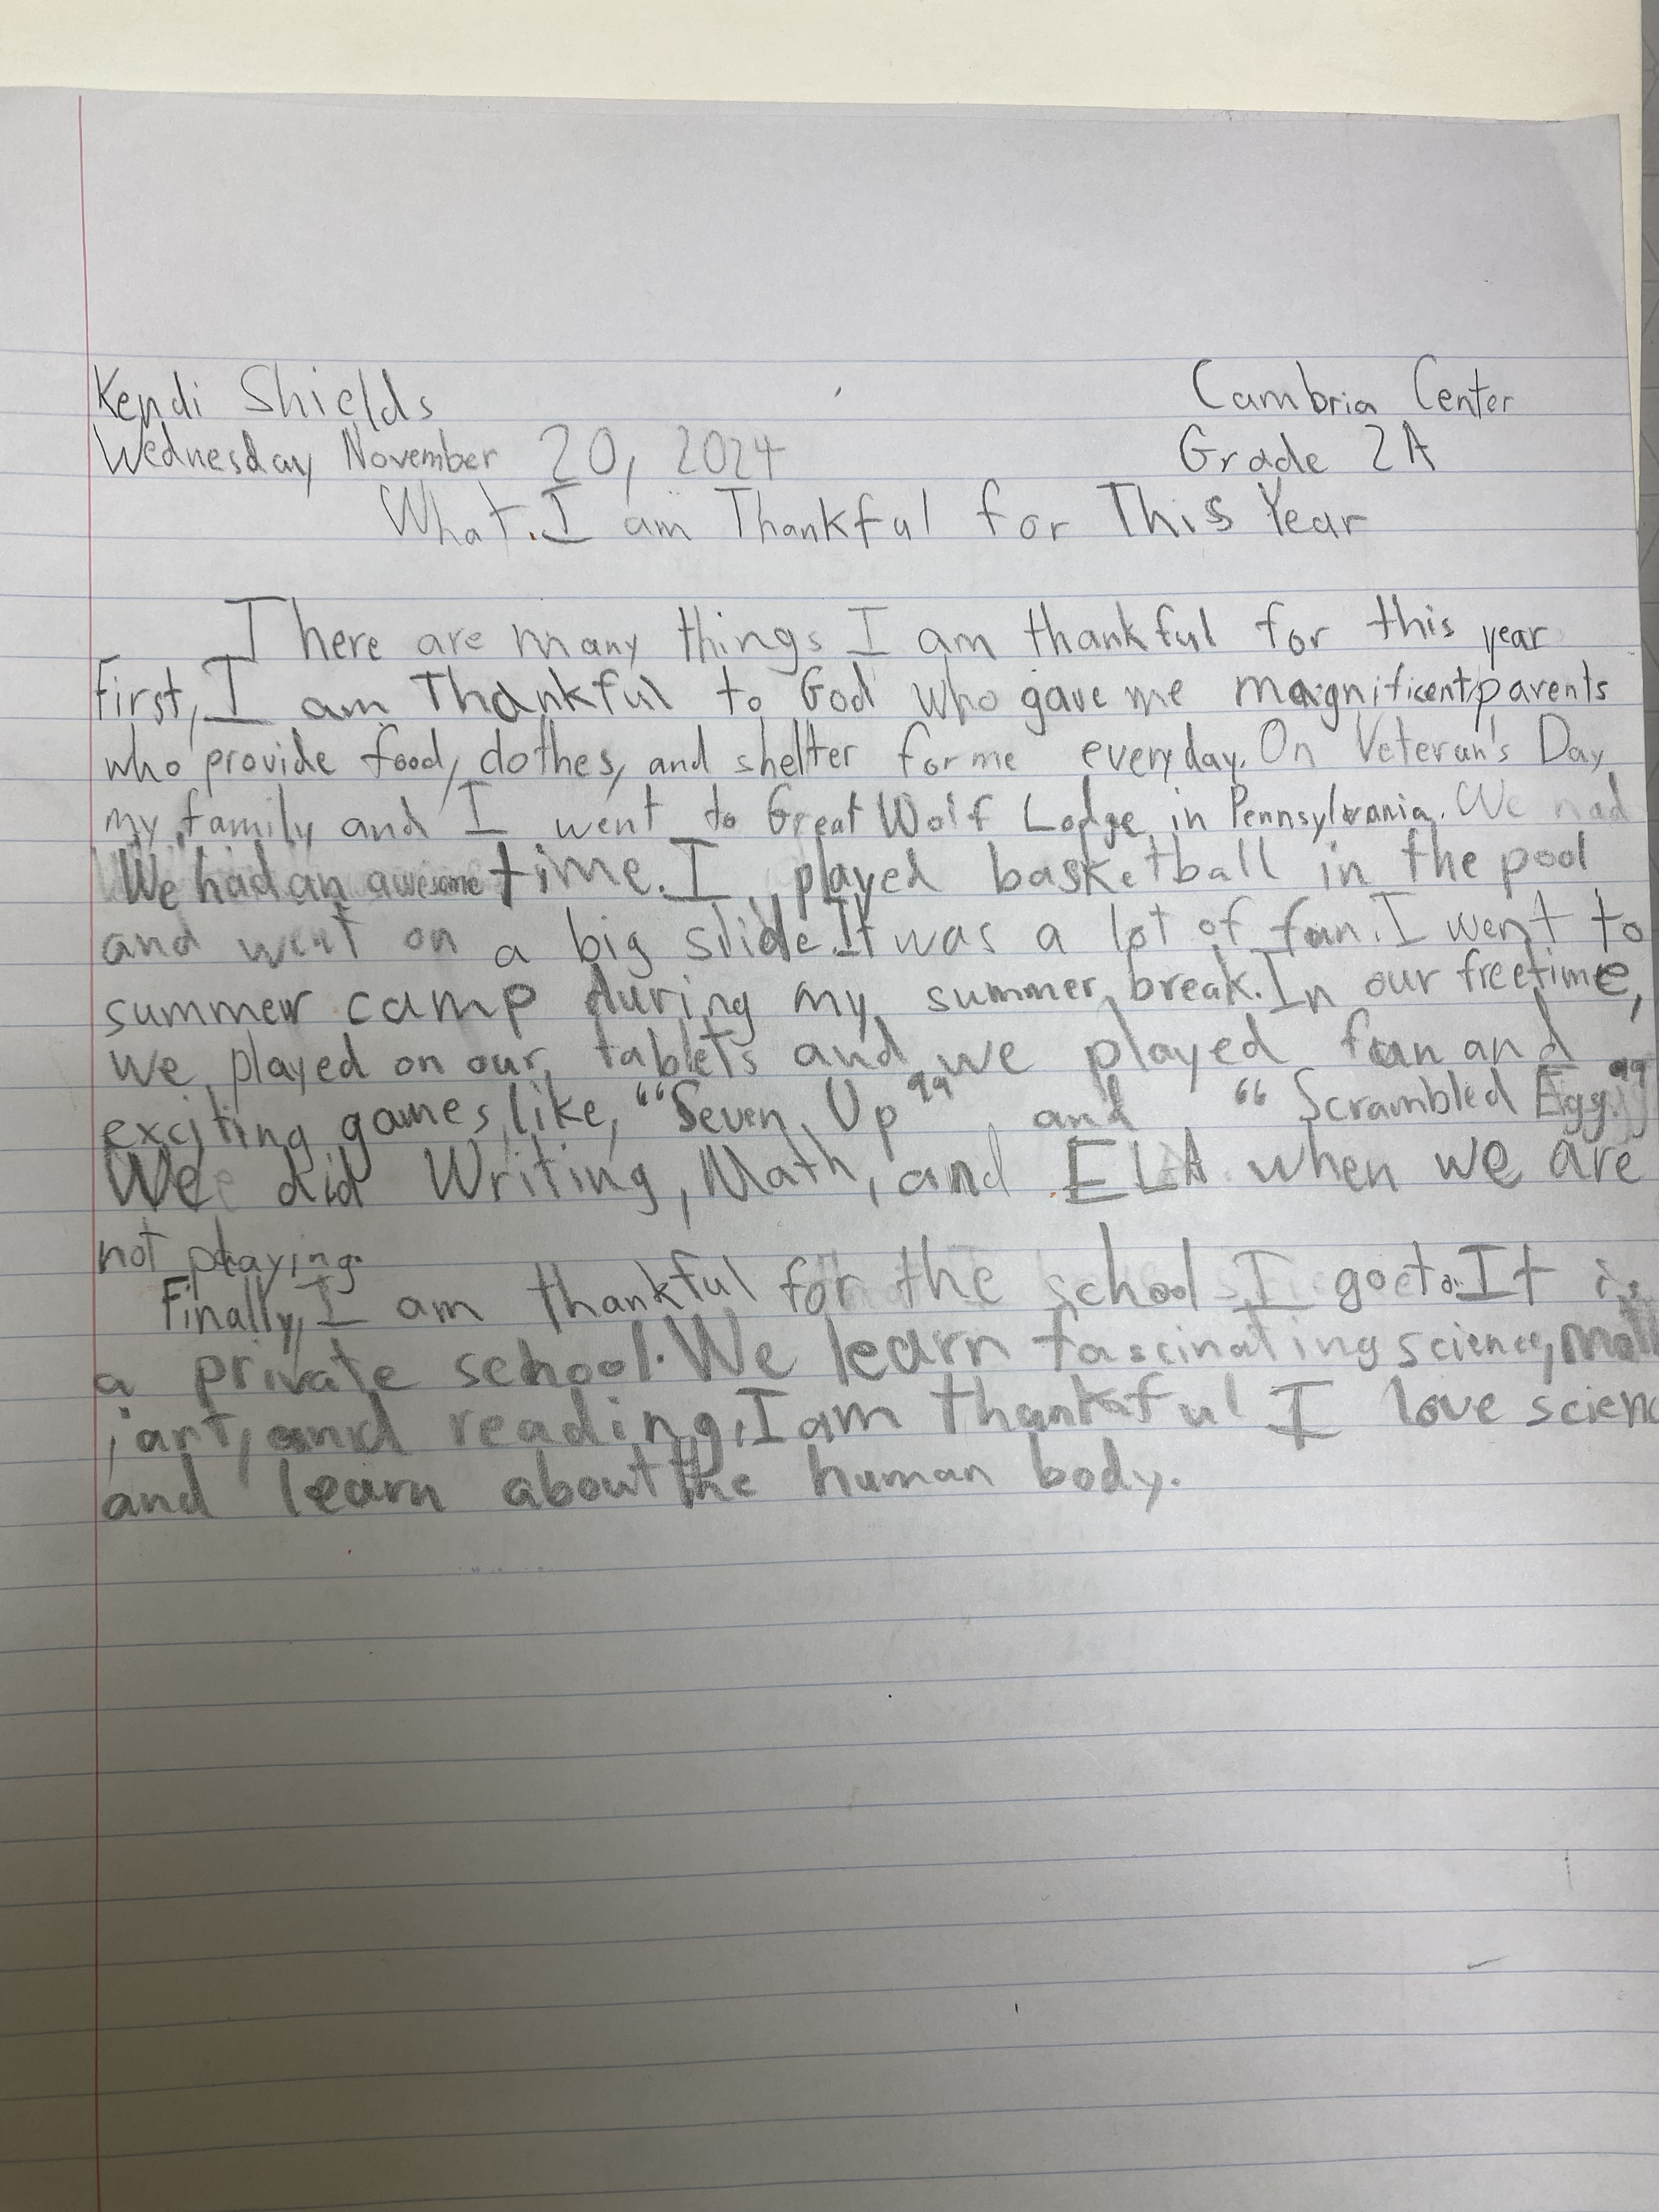 Kendi Shields Cambria Center
Wednesday November 20, 2024 Grade 2A
What I am Thankful for This Year
There are many things I am thankful for this year
First, I am Thankful to God who gave me magnificent parents
who provide food, clothes, and shelter for me everyday. On Veteran's Day
my family and I went to Great Wolf Lodge in Pennsylvania. We had
We had an awesome time. I played basketball in the pool
and went on a big slide. It was a lot of fun. I went to
summer camp during my summer break. In our freetime,
we played on our tablets and we played fun and
exciting games like, "Seven Up" and "Scrambled Egg."
We did Writing, Math, and ELA when we are
not playing.
Finally, I am thankful for the school I go to. It is
a private school. We learn fascinating science, math
, art, and reading. I am thankful I love scienc
and learn about the human body.